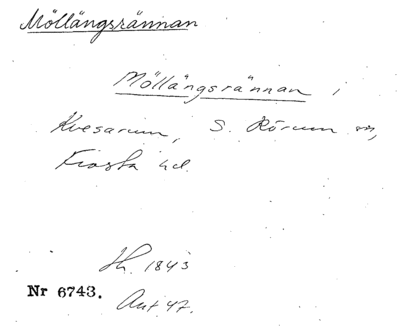 Möllängsrännan
Möllängsrännan i
Kvesarum, S. Rörum sn,
Frosta hd.
Sk. 1843
Nr 6743.
Ant 47.